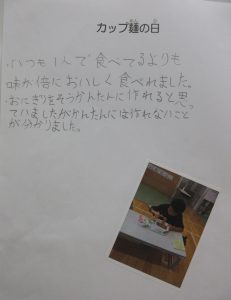 カップ麺の日
いつも1人で食べてるよりも
味が倍においしく食べれました。
おにぎりをそうかんたんに作れると思っ
ていましたがかんたんには作れないこと
が分かりました。